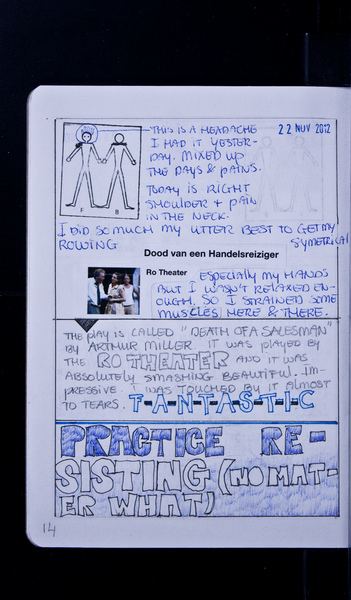 THIS IS A HEADACHE
22 NOV 2012
I HAD IT YESTER-
DAY. MIXED UP
THE DAYS & PAINS.
TODAY IS RIGHT
SHOULDER + PAIN
IN THE NECK.
F B
I DID SO MUCH MY UTTER BEST TO GET MY
ROWING SYMETRICAL
Dood van een Handelsreiziger
Ro Theater
ESPECIALLY MY HANDS
BUT I WASN'T RELAXED EN-
OUGH. SO I STRAINED SOME
MUSCLES HERE & THERE.
THE PLAY IS CALLED "DEATH OF A SALESMAN"
BY ARTHUR MILLER. IT WAS PLAYED BY
THE RO THEATER AND IT WAS
ABSOLUTELY SMASHING BEAUTIFUL. IM-
PRESSIVE. I WAS TOUCHED BY IT ALMOST
TO TEARS. F-A-N-T-A-S-T-I-C
PRACTICE RE-
SISTING (NO MAT-
ER WHAT)
14